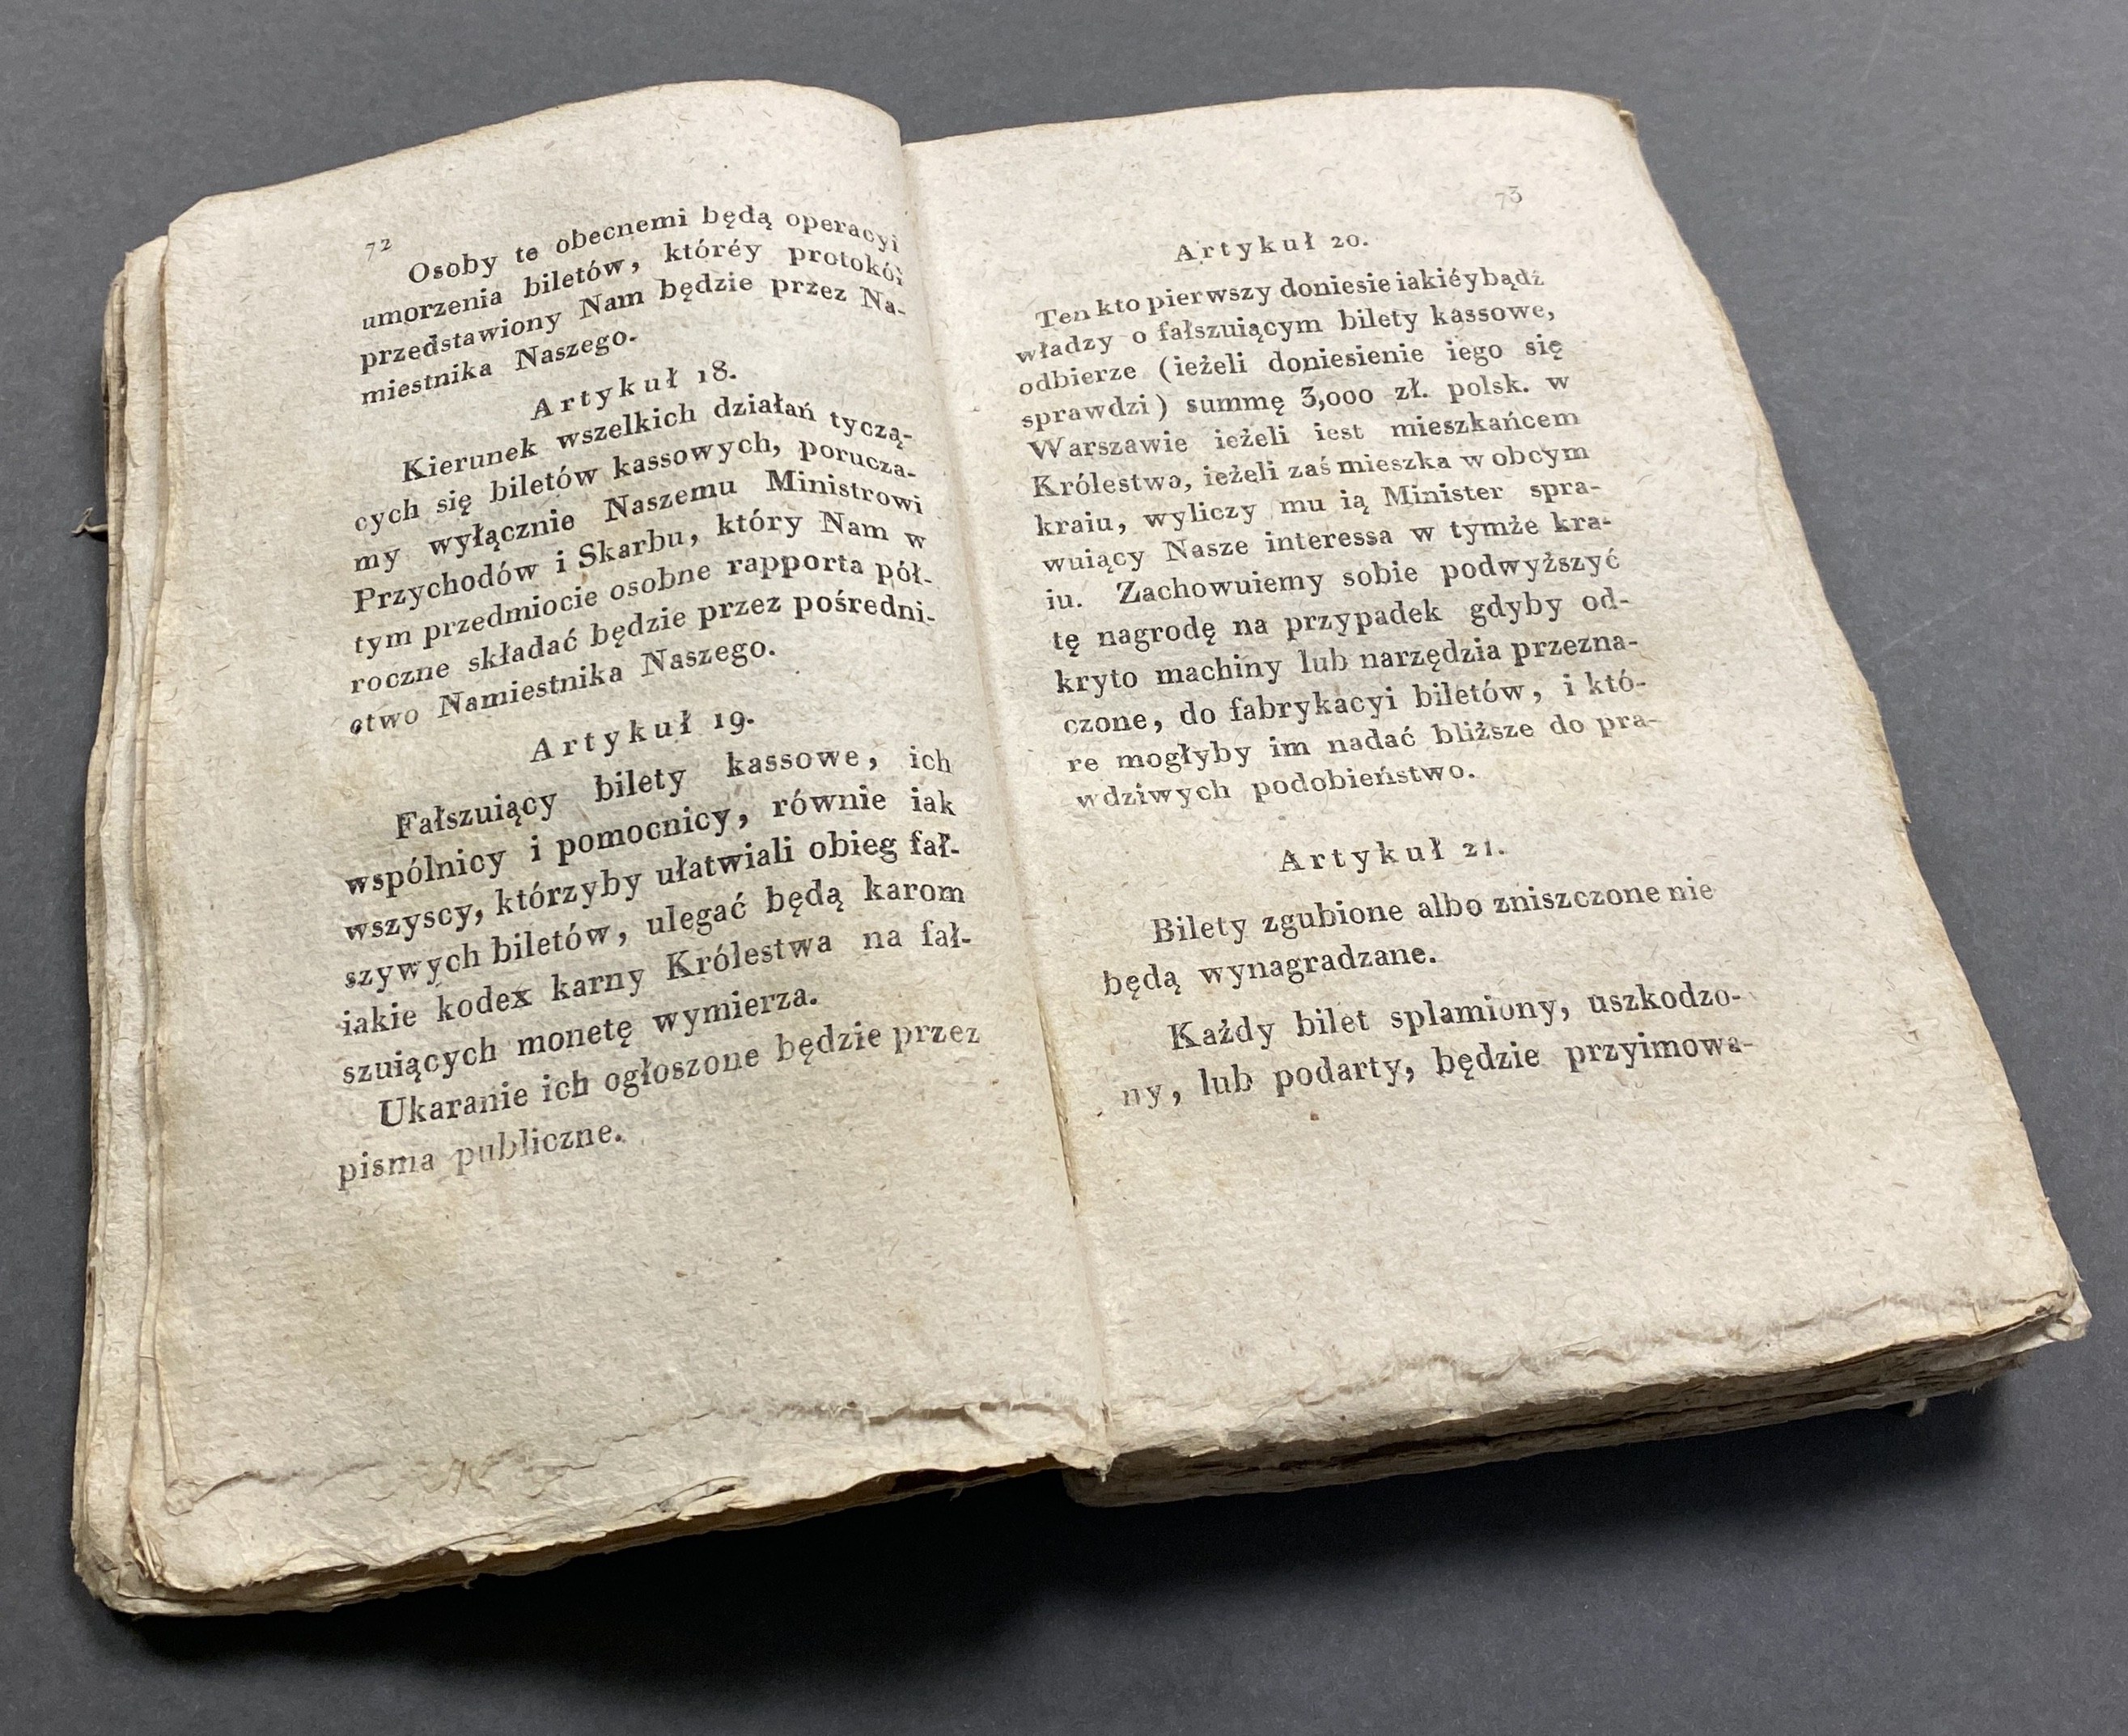 72
Osoby te obecnemi będą operacyi
umorzenia biletów, któréy protokó
przedstawiony Nam będzie przez Na-
miestnika Naszego.
Artykuł 18.
Kierunek wszelkich działań tyczą-
cych się biletów kassowych, porucza-
my wyłącznie Naszemu Ministrowi
Przychodów i Skarbu, który Nam w
tym przedmiocie osobne rapporta pół-
roczne składać będzie przez pośredni-
ctwo Namiestnika Naszego.
Artykuł 19.
Fałszuiący bilety kassowe, ich
wspólnicy i pomocnicy, równie iak
wszyscy, którzyby ułatwiali obieg fał-
szywych biletów, ulegać będą karom
iakie kodex karny Królestwa na fał-
szuiących monetę wymierza.
Ukaranie ich ogłoszone będzie przez
pisma publiczne.
73
Artykuł 20.
Ten kto pierwszy doniesie iakiéybądź
władzy o fałszuiącym bilety kassowe,
odbierze (ieżeli doniesienie iego się
sprawdzi) summę 3,000 zł. polsk. w
Warszawie ieżeli iest mieszkańcem
Królestwa, ieżeli zaś mieszka w obcym
kraiu, wyliczy mu ią Minister spra-
wuiący Nasze interessa w tymże kra-
iu. Zachowuiemy sobie podwyższyć
tę nagrodę na przypadek gdyby od-
kryto machiny lub narzędzia przezna-
czone, do fabrykacyi biletów, i któ-
re mogłyby im nadać bliższe do pra-
wdziwych podobieństwo.
Artykuł 21.
Bilety zgubione albo zniszczone nie
będą wynagradzane.
Każdy bilet splamiony, uszkodzo-
ny, lub podarty, będzie przyimowa-